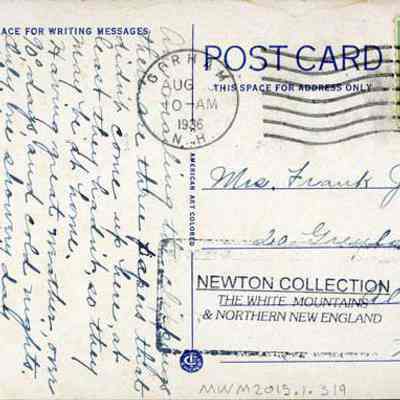 ACE FOR WRITING MESSAGES
POST CARD
THIS SPACE FOR ADDRESS ONLY
GORHAM
AUG
10-AM
1936
N.H.
AMERICAN ART COLORED
Mrs. Frank J
20
NEWTON COLLECTION
THE WHITE MOUNTAINS
& NORTHERN NEW ENGLAND
MWM2015.1.319
the clippings
these are the papers that
didn't come up here, at
least they hadn't, so they
may be at home.
Having great weather, over
90 days, and cold nights
only one showery day